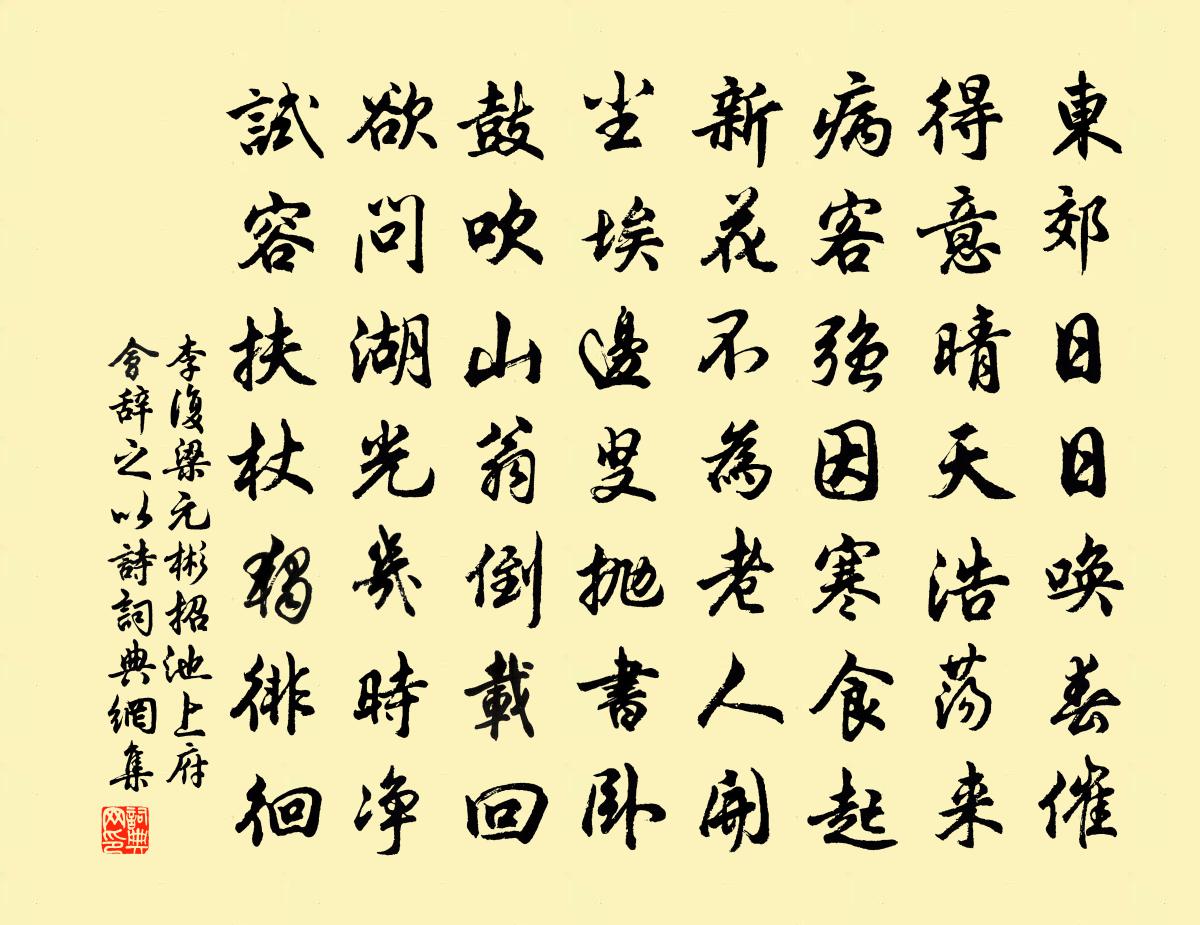 東郊日日喚春催
得意晴天浩蕩来
病客強因寒食起
新花不為老人開
尘埃邊叟抛書卧
鼓吹山翁倒載回
欲問湖光幾時净
試容扶杖獨徘徊
李復梁元彬招池上府
會辞之以詩詞典網集
詞典网印